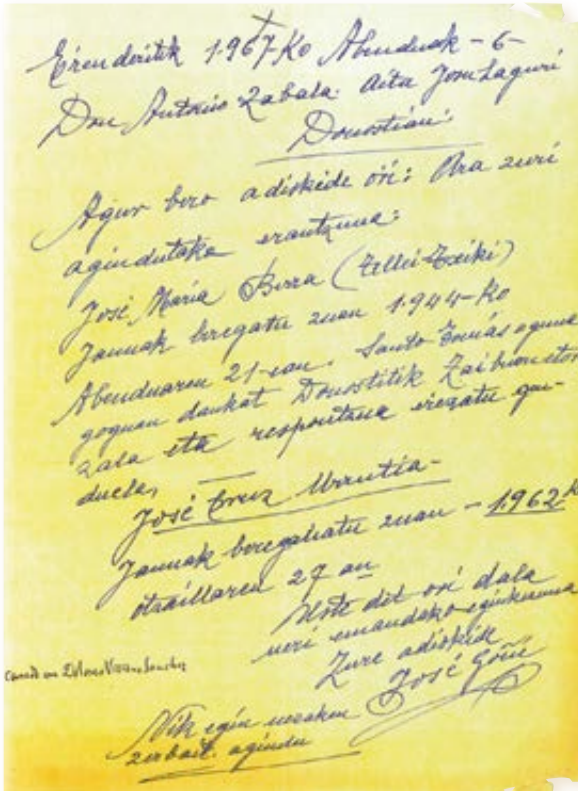 Errenderitik 1.967-Ko Abenduak - 6 -
Don Antonio Zabala. Aita Jom Laguri
Donostian:
Agur bero adiskide ori: Ara zuri
agindutako erantzuna:
José María Berra (Zellei-Txiki)
Jaunak beregatu zuan 1.944-Ko
Abenduaren 21-ean. Santo Tomás eguna
goguan daukat Donostitik etor
zala eta respontzua errezatu gen-
duela,
José Cruz Urrutia -
Jaunak beregatu zuan - 1.962 K
otsaillaren 27 an
Uste dit ori dala
neri emandako eginkizuna
Zure adiskide
José Goñi
canso
Nik egin nezaken
zerbait. agindu